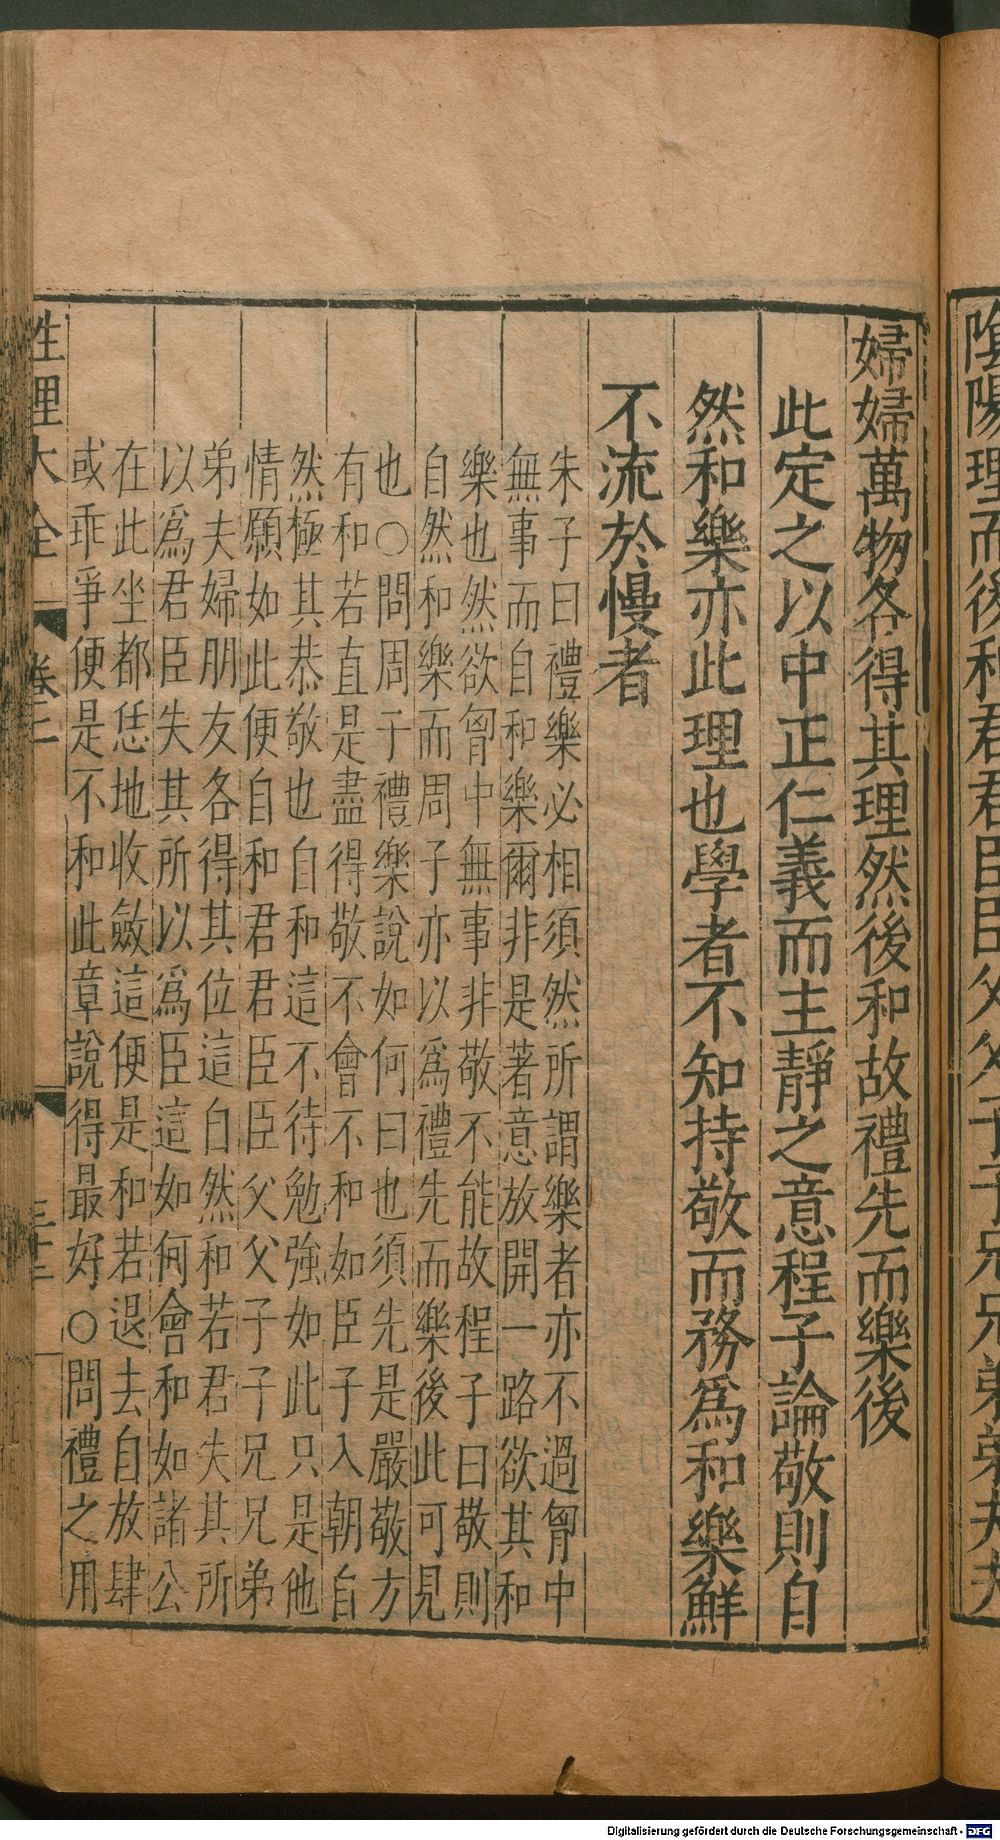 陰陽理而後和君君臣臣父父子子兄兄弟弟夫夫
婦婦萬物各得其理然後和故禮先而樂後
此定之以中正仁義而主靜之意程子論敬則自
然和樂亦此理也學者不知持敬而務爲和樂鮮
不流於慢者
朱子曰禮樂必相須然所謂樂者亦不過胷中
無事而自和樂爾非是著意放開一路欲其和
樂也然欲胷中無事非敬不能故程子曰敬則
自然和樂而周子亦以爲禮先而樂後此可見
也○問周子禮樂說如何曰也須先是嚴敬方
有和若直是盡得敬不會不和如臣子入朝自
然極其恭敬也自和這不待勉強如此只是他
情願如此便自和君君臣臣父父子子兄兄弟
弟夫婦朋友各得其位這自然和若君失其所
以爲君臣失其所以爲臣這如何會和如諸公
在此坐都恁地收斂這便是和若退去自放肆
或乖爭便是不和此章說得最好○問禮之用
性理大全 卷二 三十二
Digitalisierung gefördert durch die Deutsche Forschungsgemeinschaft - DFG